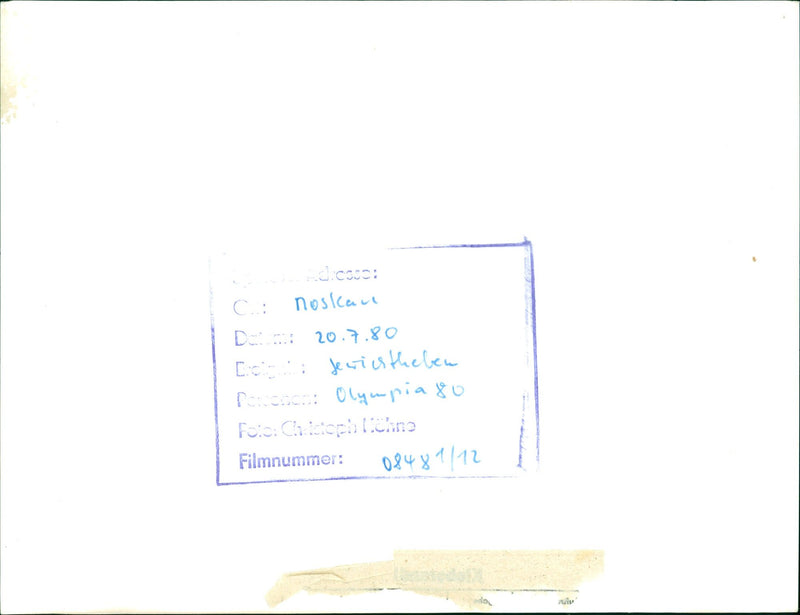 Adresse:
Ort: Moskau
Datum: 20.7.80
Ereignis: Gewichtheben
Personen: Olympia 80
Foto: Christoph Höhne
Filmnummer: 08481/12